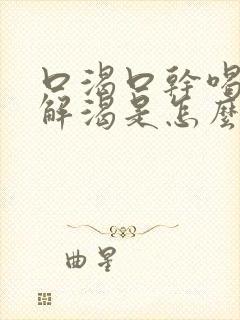 口渴口幹喝
解渴是怎麼
曲星